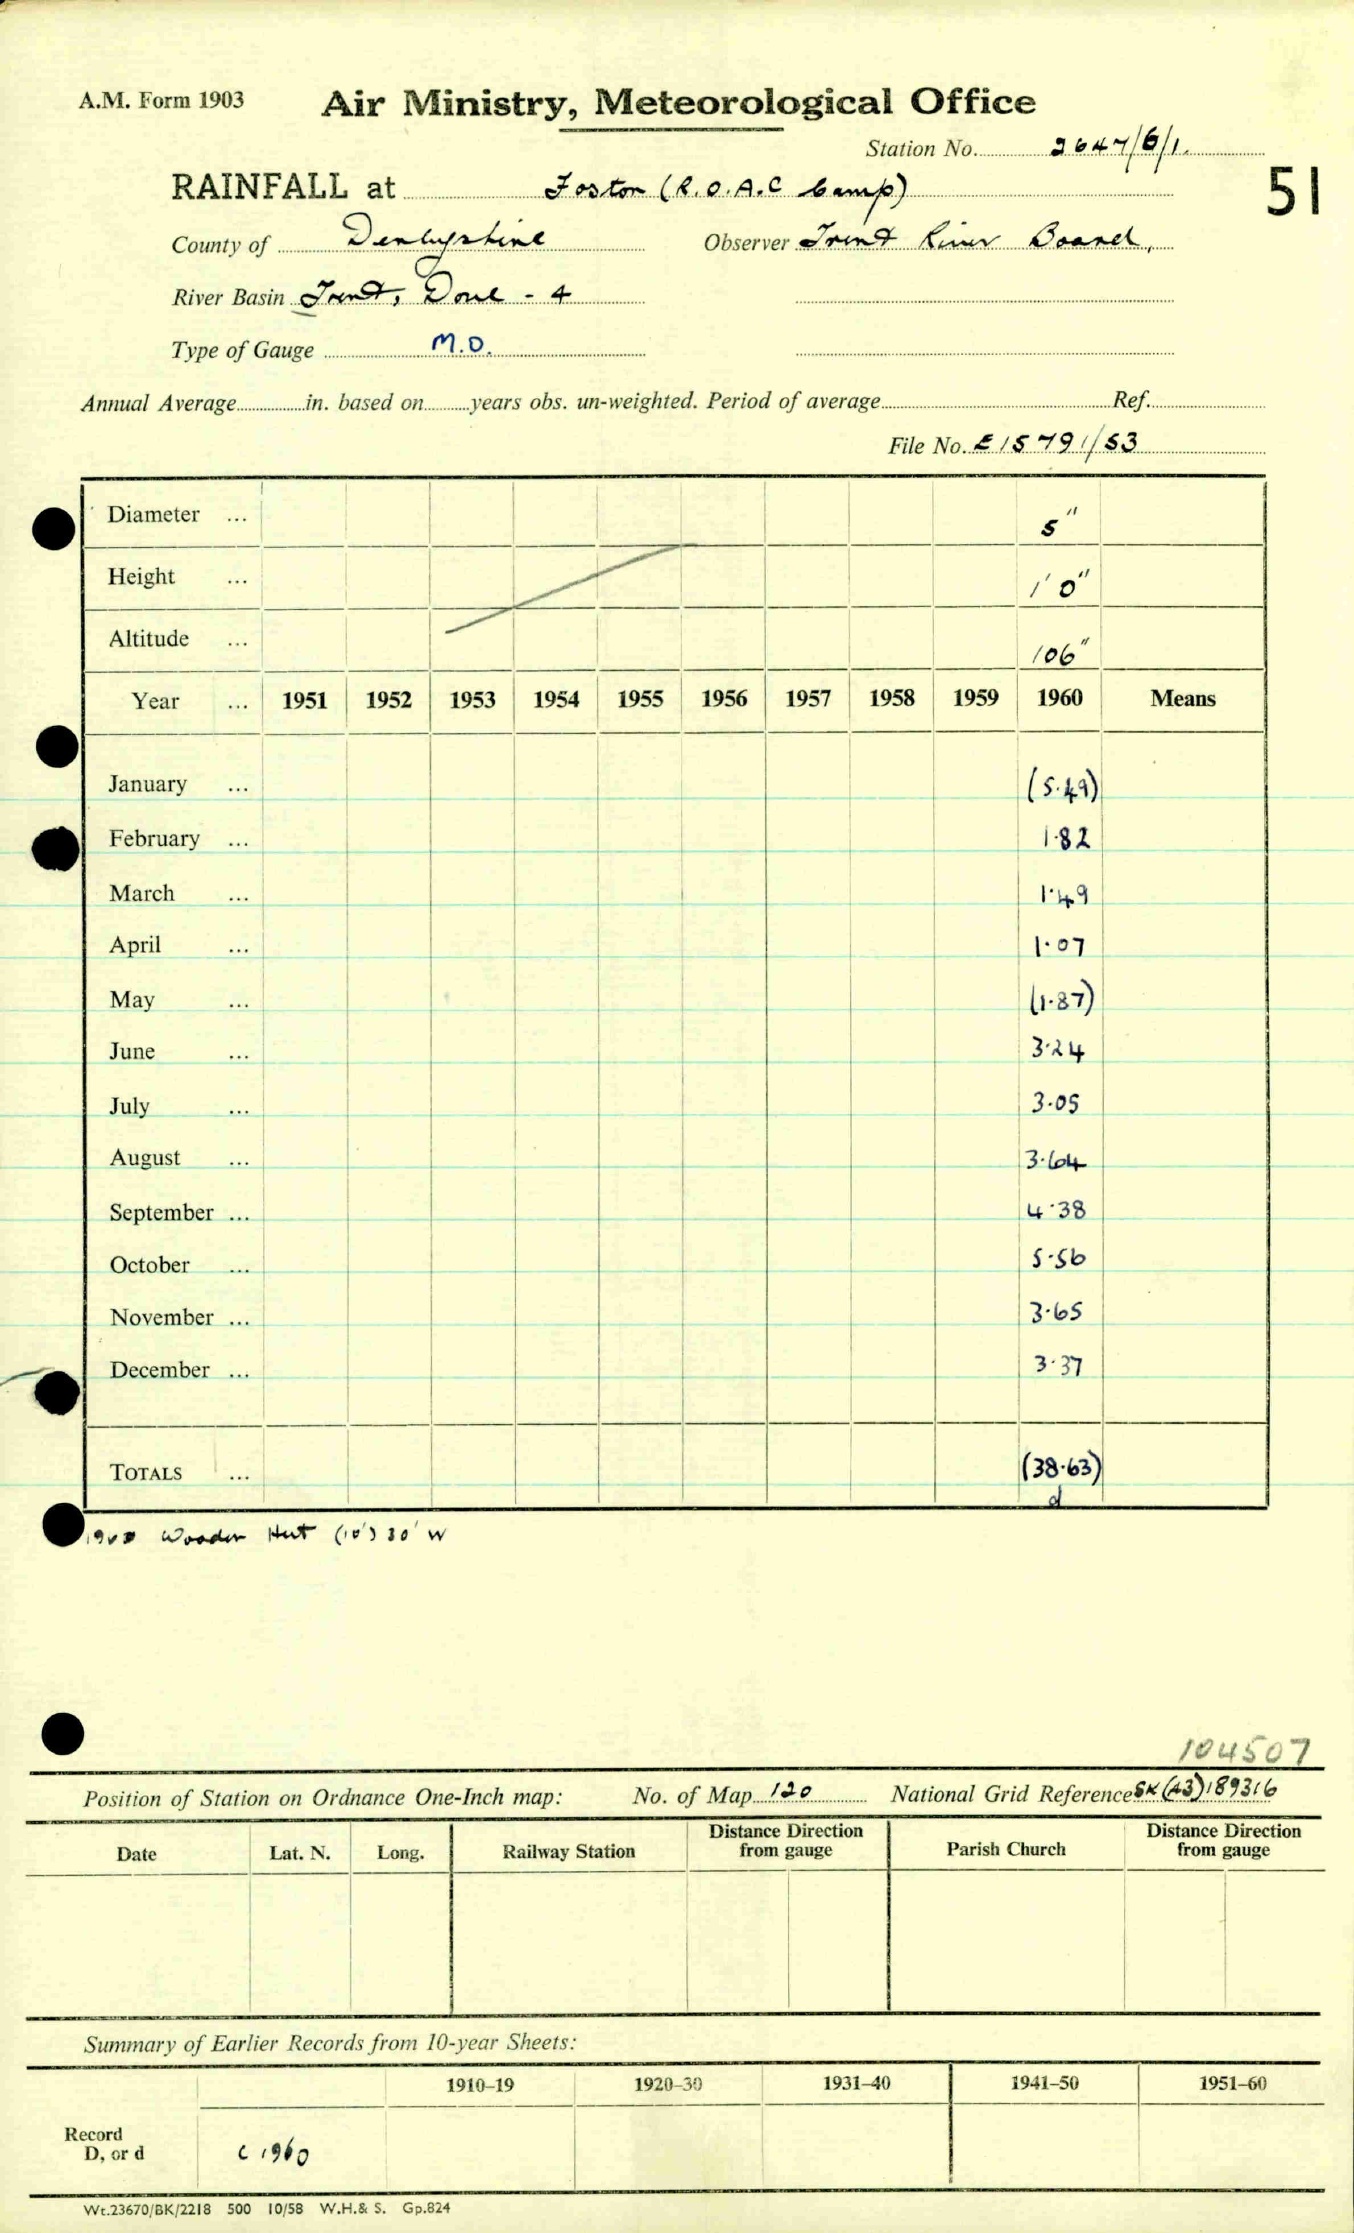 A.M. Form 1903
Air Ministry, Meteorological Office
Station No. 2647/6/1.
51
RAINFALL at Foston (R.O.A.C Camp)
County of Derbyshire Observer Trent River Board,
River Basin Trent, Dove - 4
Type of Gauge M.O.
Annual Average in. based on years obs. un-weighted. Period of average Ref.
File No. E15791/53
Diameter ... 5"
Height ... 1' 0"
Altitude ... 106"
Year ... 1951 1952 1953 1954 1955 1956 1957 1958 1959 1960 Means
January ... (5.49)
February ... 1.82
March ... 1.49
April ... 1.07
May ... (1.87)
June ... 3.24
July ... 3.05
August ... 3.64
September ... 4.38
October ... 5.56
November ... 3.65
December ... 3.37
TOTALS ... (38.63)
d
Wooden Hut (10') 30' W
104507
Position of Station on Ordnance One-Inch map: No. of Map 120 National Grid Reference SK(43)189316
Date Lat. N. Long. Railway Station Distance Direction from gauge Parish Church Distance Direction from gauge
Summary of Earlier Records from 10-year Sheets:
1910–19 1920–30 1931–40 1941–50 1951–60
Record
D, or d c 1960
Wt.23670/BK/2218 500 10/58 W.H.& S. Gp.824